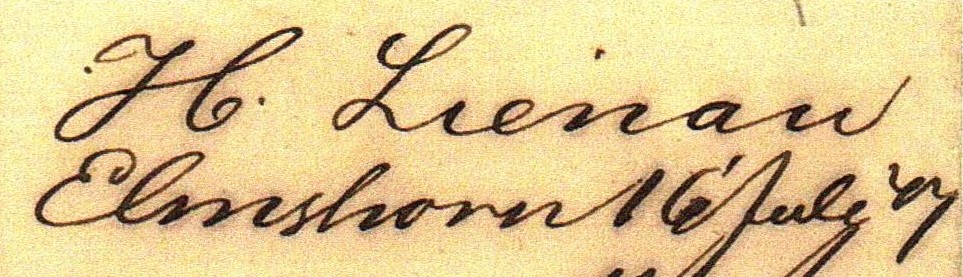 H. Lienau
Elmshorn 16 July